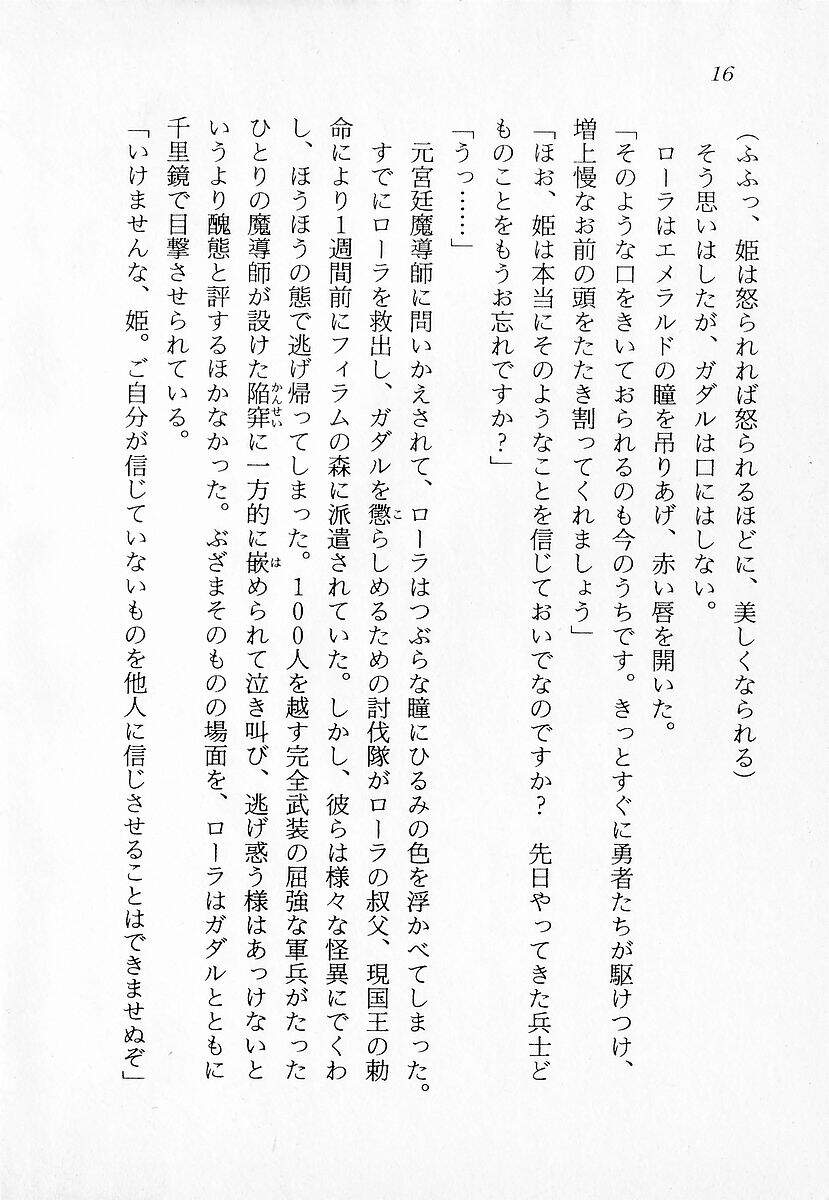 16
(ふふっ、姫は怒られれば怒られるほどに、美しくなられる)
そう思いはしたが、ガダルは口にはしない。
ローラはエメラルドの瞳を吊りあげ、赤い唇を開いた。
「そのような口をきいておられるのも今のうちです。きっとすぐに勇者たちが駆けつけ、
増上慢なお前の頭をたたき割ってくれましょう」
「ほお、姫は本当にそのようなことを信じておいでなのですか? 先日やってきた兵士ど
ものことをもうお忘れですか?」
「うっ……」
元宮廷魔導師に問いかえされて、ローラはつぶらな瞳にひるみの色を浮かべてしまった。
すでにローラを救出し、ガダルを懲こらしめるための討伐隊がローラの叔父、現国王の勅
命により1週間前にフィラムの森に派遣されていた。しかし、彼らは様々な怪異にでくわ
し、ほうほうの態で逃げ帰ってしまった。100人を越す完全武装の屈強な軍兵がたった
ひとりの魔導師が設けた陥穽かんせいに一方的に嵌はめられて泣き叫び、逃げ惑う様はあっけないと
いうより醜態と評するほかなかった。ぶざまそのものの場面を、ローラはガダルとともに
千里鏡で目撃させられている。
「いけませんな、姫。ご自分が信じていないものを他人に信じさせることはできませぬぞ」